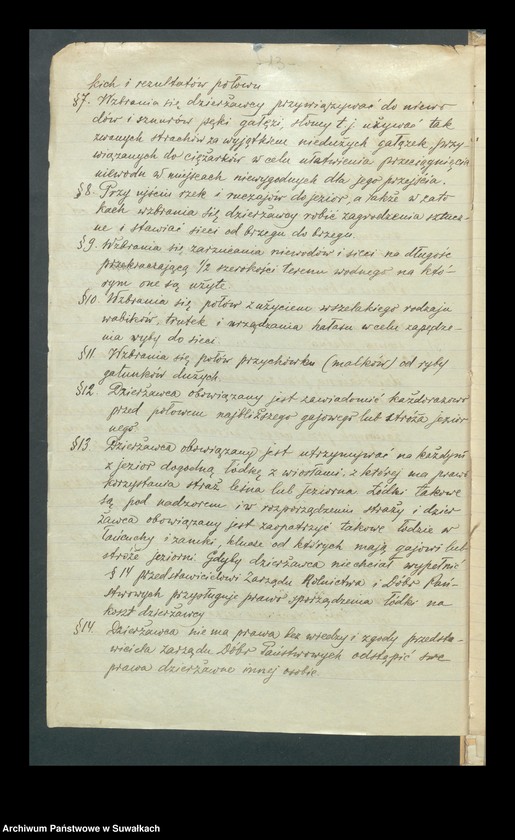 - 13 -
kich i rezultatów połowu
§7. Wzbrania się dzierżawcy przywiązywać do niewo-
dów i sznurów pęki gałęzi, słomy t.j. używać tak
zwanych strachów za wyjątkiem niedużych gałązek przy-
wiązanych do ciężarków w celu ułatwienia przeciągnięcia
niewodu w miejscach niewygodnych dla jego przejścia.
§8. Przy ujściu rzek i ruczajów do jezior, a także w zato-
kach wzbrania się dzierżawcy robić zagrodzenia sztucz-
ne i stawiać sieci od brzegu do brzegu.
§9. Wzbrania się zarzucania niewodów i sieci na długość
przekraczającą 1/2 szerokości terenu wodnego na któ-
rym one są użyte.
§10. Wzbrania się połów z użyciem wszelakiego rodzaju
wabików, trutek i urządzania hałasu w celu zapędze-
nia ryby do sieci.
§11. Wzbrania się połów przychówku (malków) od ryby
gatunków dużych.
§12. Dzierżawca obowiązany jest zawiadomić każdorazowo
przed połowem najbliższego gajowego lub stróża jezior-
nego.
§13 Dzierżawca obowiązany jest utrzymywać na każdym
z jezior dogodną łódkę z wiosłami, z której ma prawo
korzystania straż leśna lub jeziorna. Łódki takowe
są pod nadzorem i w rozporządzeniu straży i dzier-
żawca obowiązany jest zaopatrzyć takowe łodzie w
łańcuchy i zamki, klucze od których mają gajowi lub
stróże jeziorni. Gdyby dzierżawca nie chciał wypełnić
§ 14 przedstawicielowi Zarządu Rolnictwa i Dóbr Pań-
stwowych przysługuje prawo sporządzenia łódki na
koszt dzierżawcy
§14. Dzierżawca nie ma prawa bez wiedzy i zgody przedsta-
wiciela Zarządu Dóbr Państwowych odstąpić swe
prawa dzierżawne innej osobie.
Archiwum Państwowe w Suwałkach